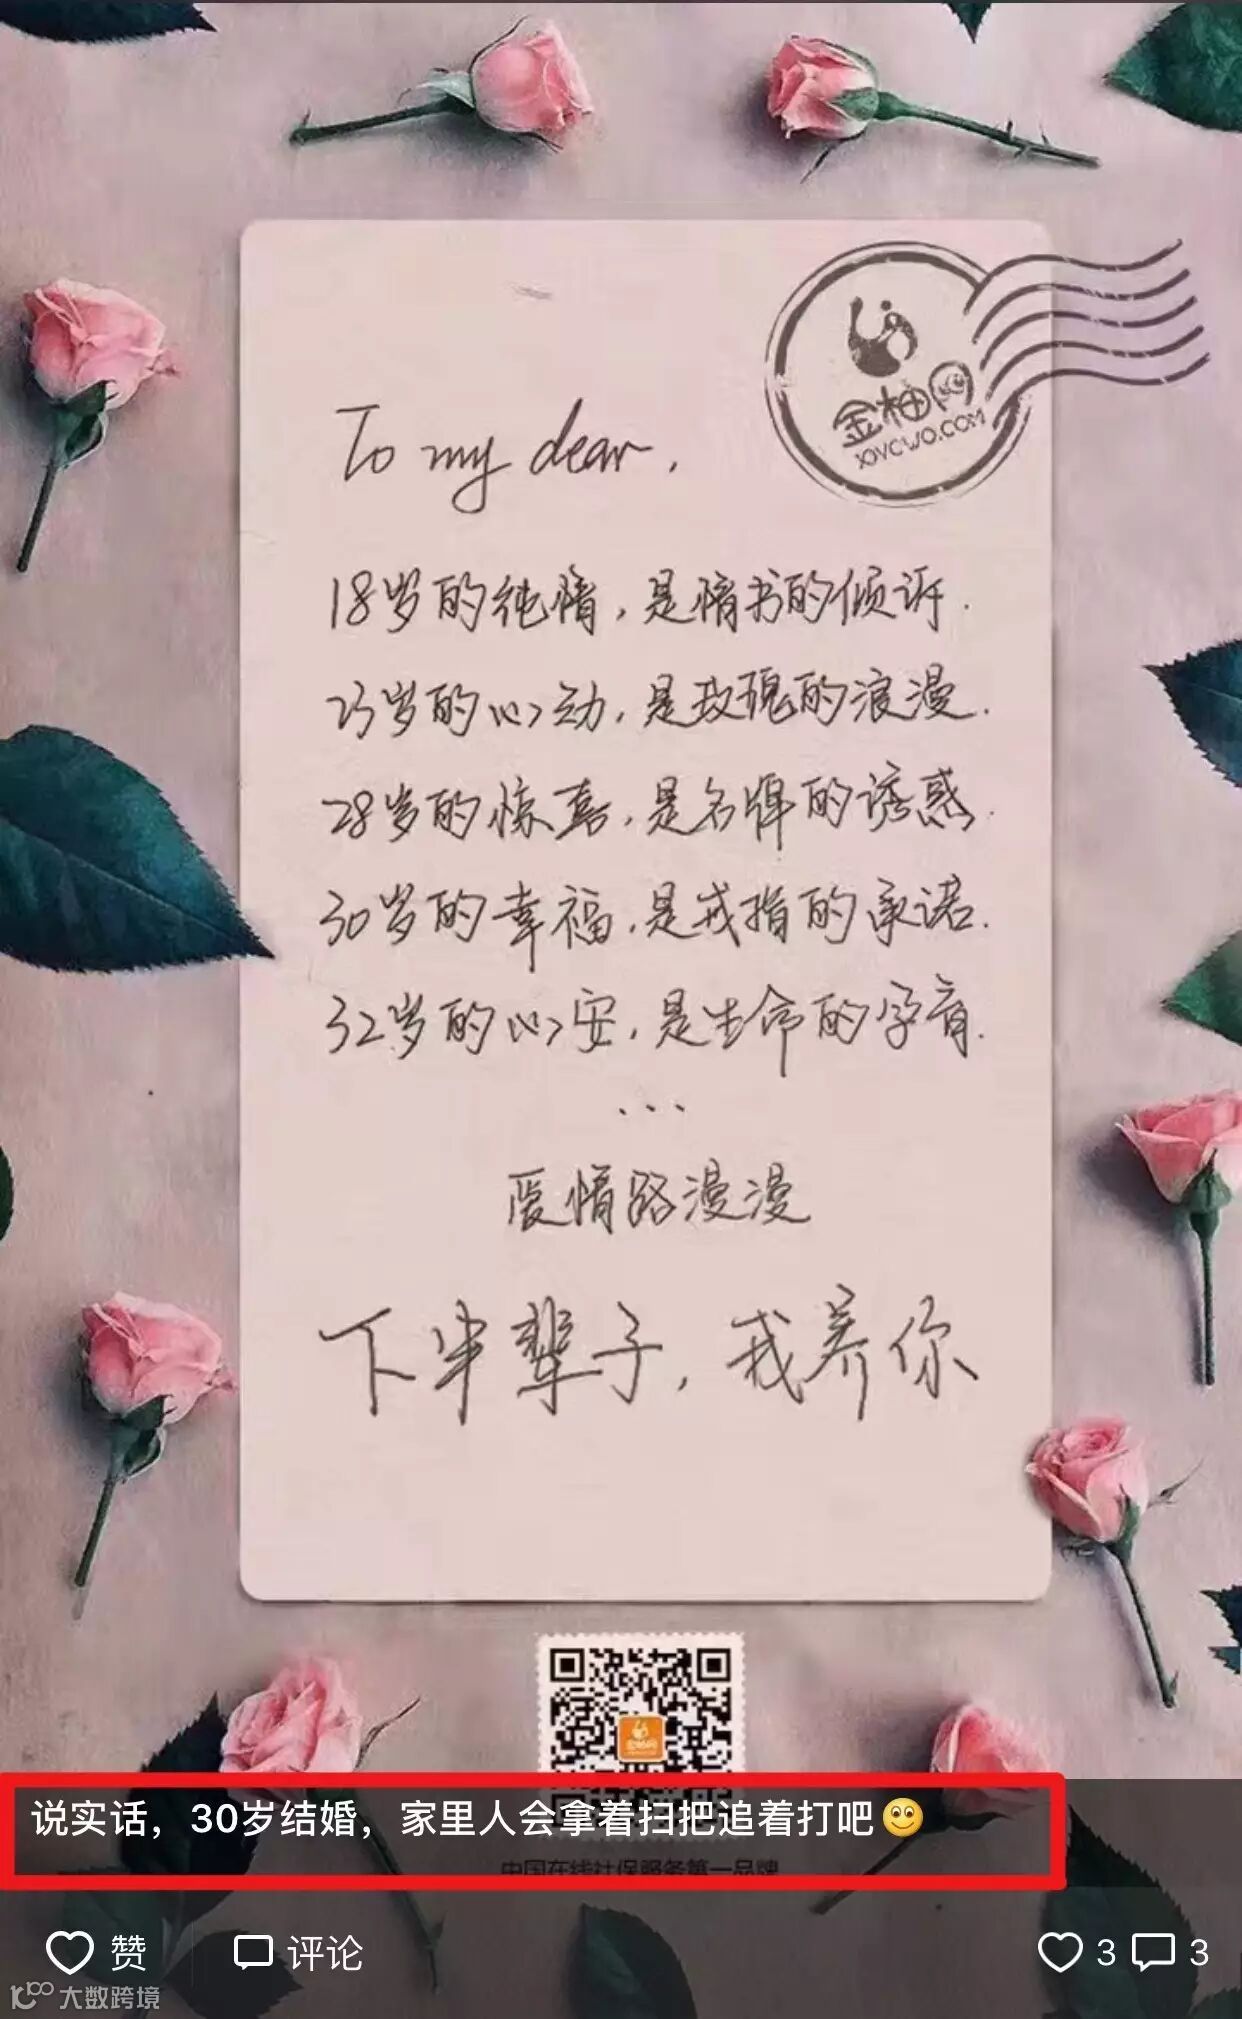 金柚网
JOYOWO.COM
To my dear,
18岁的纯情，是情书的倾诉.
23岁的心动，是玫瑰的浪漫.
28岁的惊喜，是名牌的诱惑.
30岁的幸福，是戒指的承诺.
32岁的心安，是生命的孕育.
...
爱情路漫漫
下半辈子，我养你
金柚网
说实话，30岁结婚，家里人会拿着扫把追着打吧🙂
中国在线社保服务第一品牌
赞
评论
3
3
大数跨境